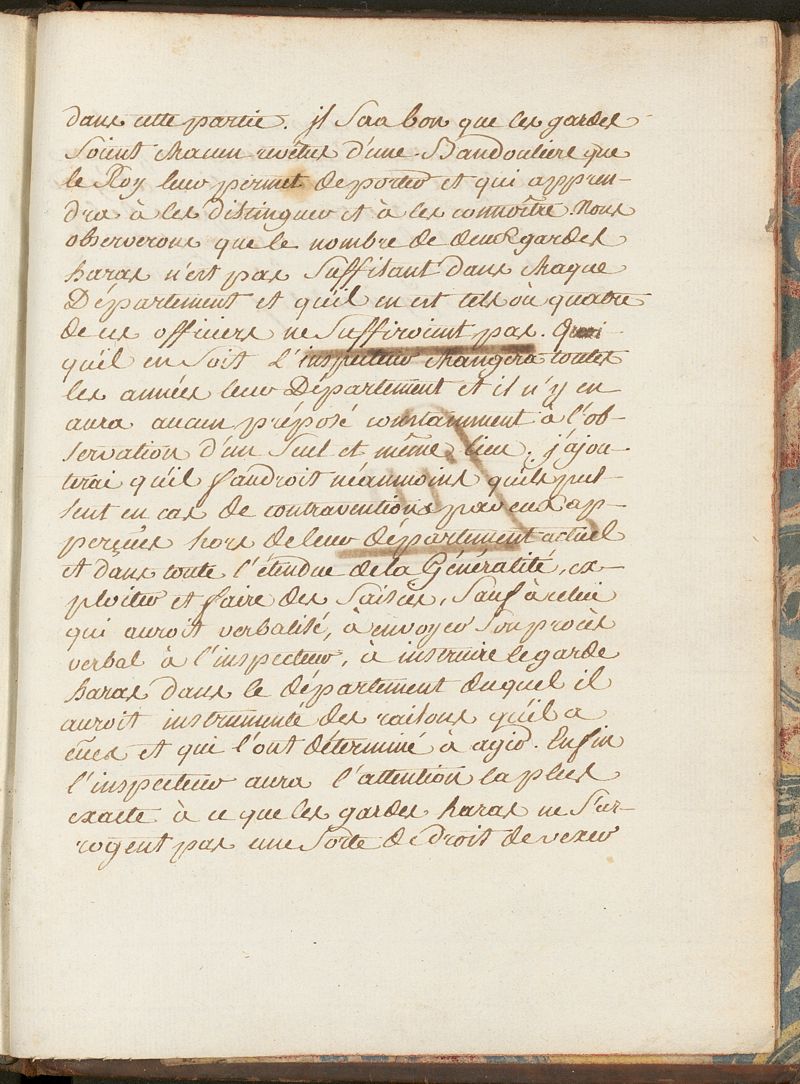 dans cette partie. jl Sera bon que les gardes
Soient chacun revétus d'une Bandouliere que
le Roy leur permet de porter et qui appren-
dra à les distinguer et à les connoître. Nous
observerons que le nombre de deux gardes
haras n'est pas Suffisant dans chaque
Département et qu'il en est tels où quatre
de ces officiers ne Suffiroient pas. Quoi
qu'il en Soit l'inspecteur changera toutes
les années leur Département et il n'y en
aura aucun préposé constamment à l'ob-
servation d'un Seul et même lieu. j'ajou-
terai qu'il faudroit néanmoins qu'ils pus-
sent en cas de contraventions par eux ap-
perçues hors de leur département actuel
et dans toute l'étendue de la Généralité, ex-
ploiter et faire des Saisies, Sauf à celui
qui auroit verbalisé, à envoyer Son procès
verbal à l'inspecteur, à instruire le garde
haras dans le département duquel il
auroit instrumenté des raisons qu'il a
eües et qui l'ont déterminé à agir. Enfin
l'inspecteur aura l'attention la plus
exacte à ce que les gardes haras ne S'ar-
rogent pas une Sorte de droit de vexer